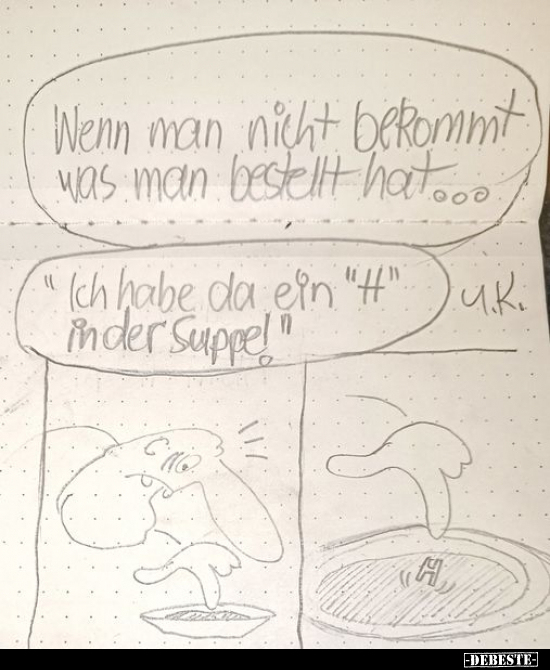 Wenn man nicht bekommt
was man bestellt hat...
"Ich habe da ein "H"
in der Suppe!"
U.K.
H
-DEBESTE-